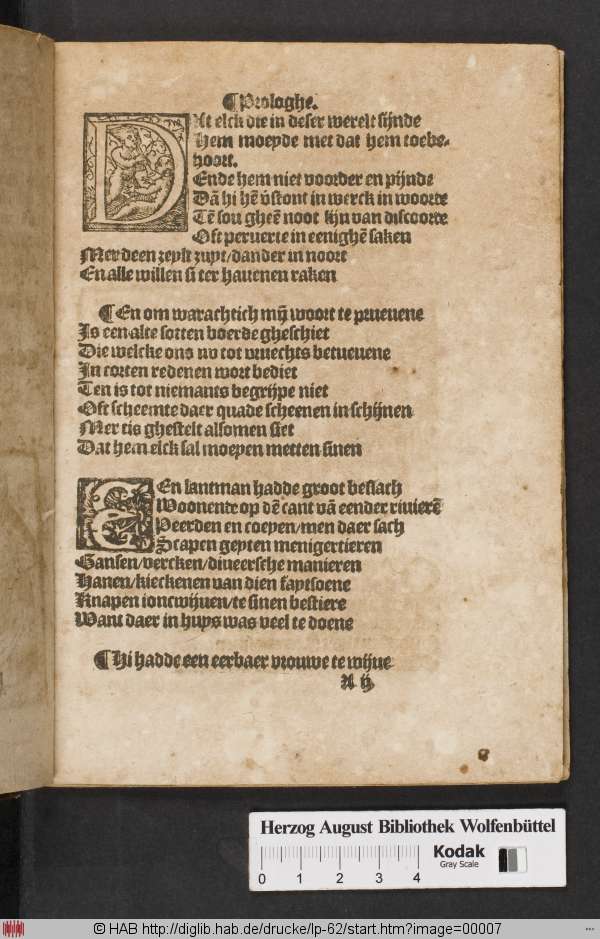 ¶Prologhe.
DAt elck die in deser werelt sijnde
Hem moeyde met dat hem toebe-
hoort.
Ende hem niet voorder en pijnde
Dā hi hē v̄stont in werck in woorde
Tē sou gheē noot sijn van discoorte
Oft perverte in eenighē saken
Mer deen zeylt zuyt/dander in noort
En alle willen si ter havenen raken
¶En om warachtich mijn woort te pruevene
Is een alte sotten boerde gheschiet
Die welcke ons nv tot vruechts betuevene
In corten redenen wort bediet
Ten is tot niemants begrijpe niet
Oft scheemte daer quade scheenen in schijnen
Mer tis ghestelt alsomen siet
Dat hem elck sal moeyen metten sinen
EEn lantman hadde groot beslach
Woonente op dē cant vā eender rivierē
Peerden en coeyen/men daer sach
Scapen geyten menigertieren
Gansen/vercken/diveersche manieren
Hanen/kieckenen van dien faytsoene
Knapen ioncwijven/te sinen bestiere
Want daer in huys was veel te doene
¶Hi hadde een eerbaer vrouwe te wijve
A ij.
Herzog August Bibliothek Wolfenbüttel
Kodak
Gray Scale
0 1 2 3 4
© HAB http://diglib.hab.de/drucke/lp-62/start.htm?image=00007